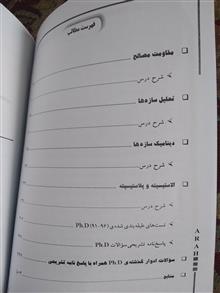 فهرست مطالب
مقاومت مصالح
شرح درس
تحلیل سازه‌ها
شرح درس
دینامیک سازه‌ها
شرح درس
الاستیسیته و پلاستیسیته
تست‌های طبقه‌بندی شده‌ی Ph.D (۹۱-۹۶)
پاسخ‌نامه تشریحی سؤالات Ph.D
سؤالات ادوار گذشته‌ی Ph.D همراه با پاسخ نامه تشریحی
منابع
ARAH